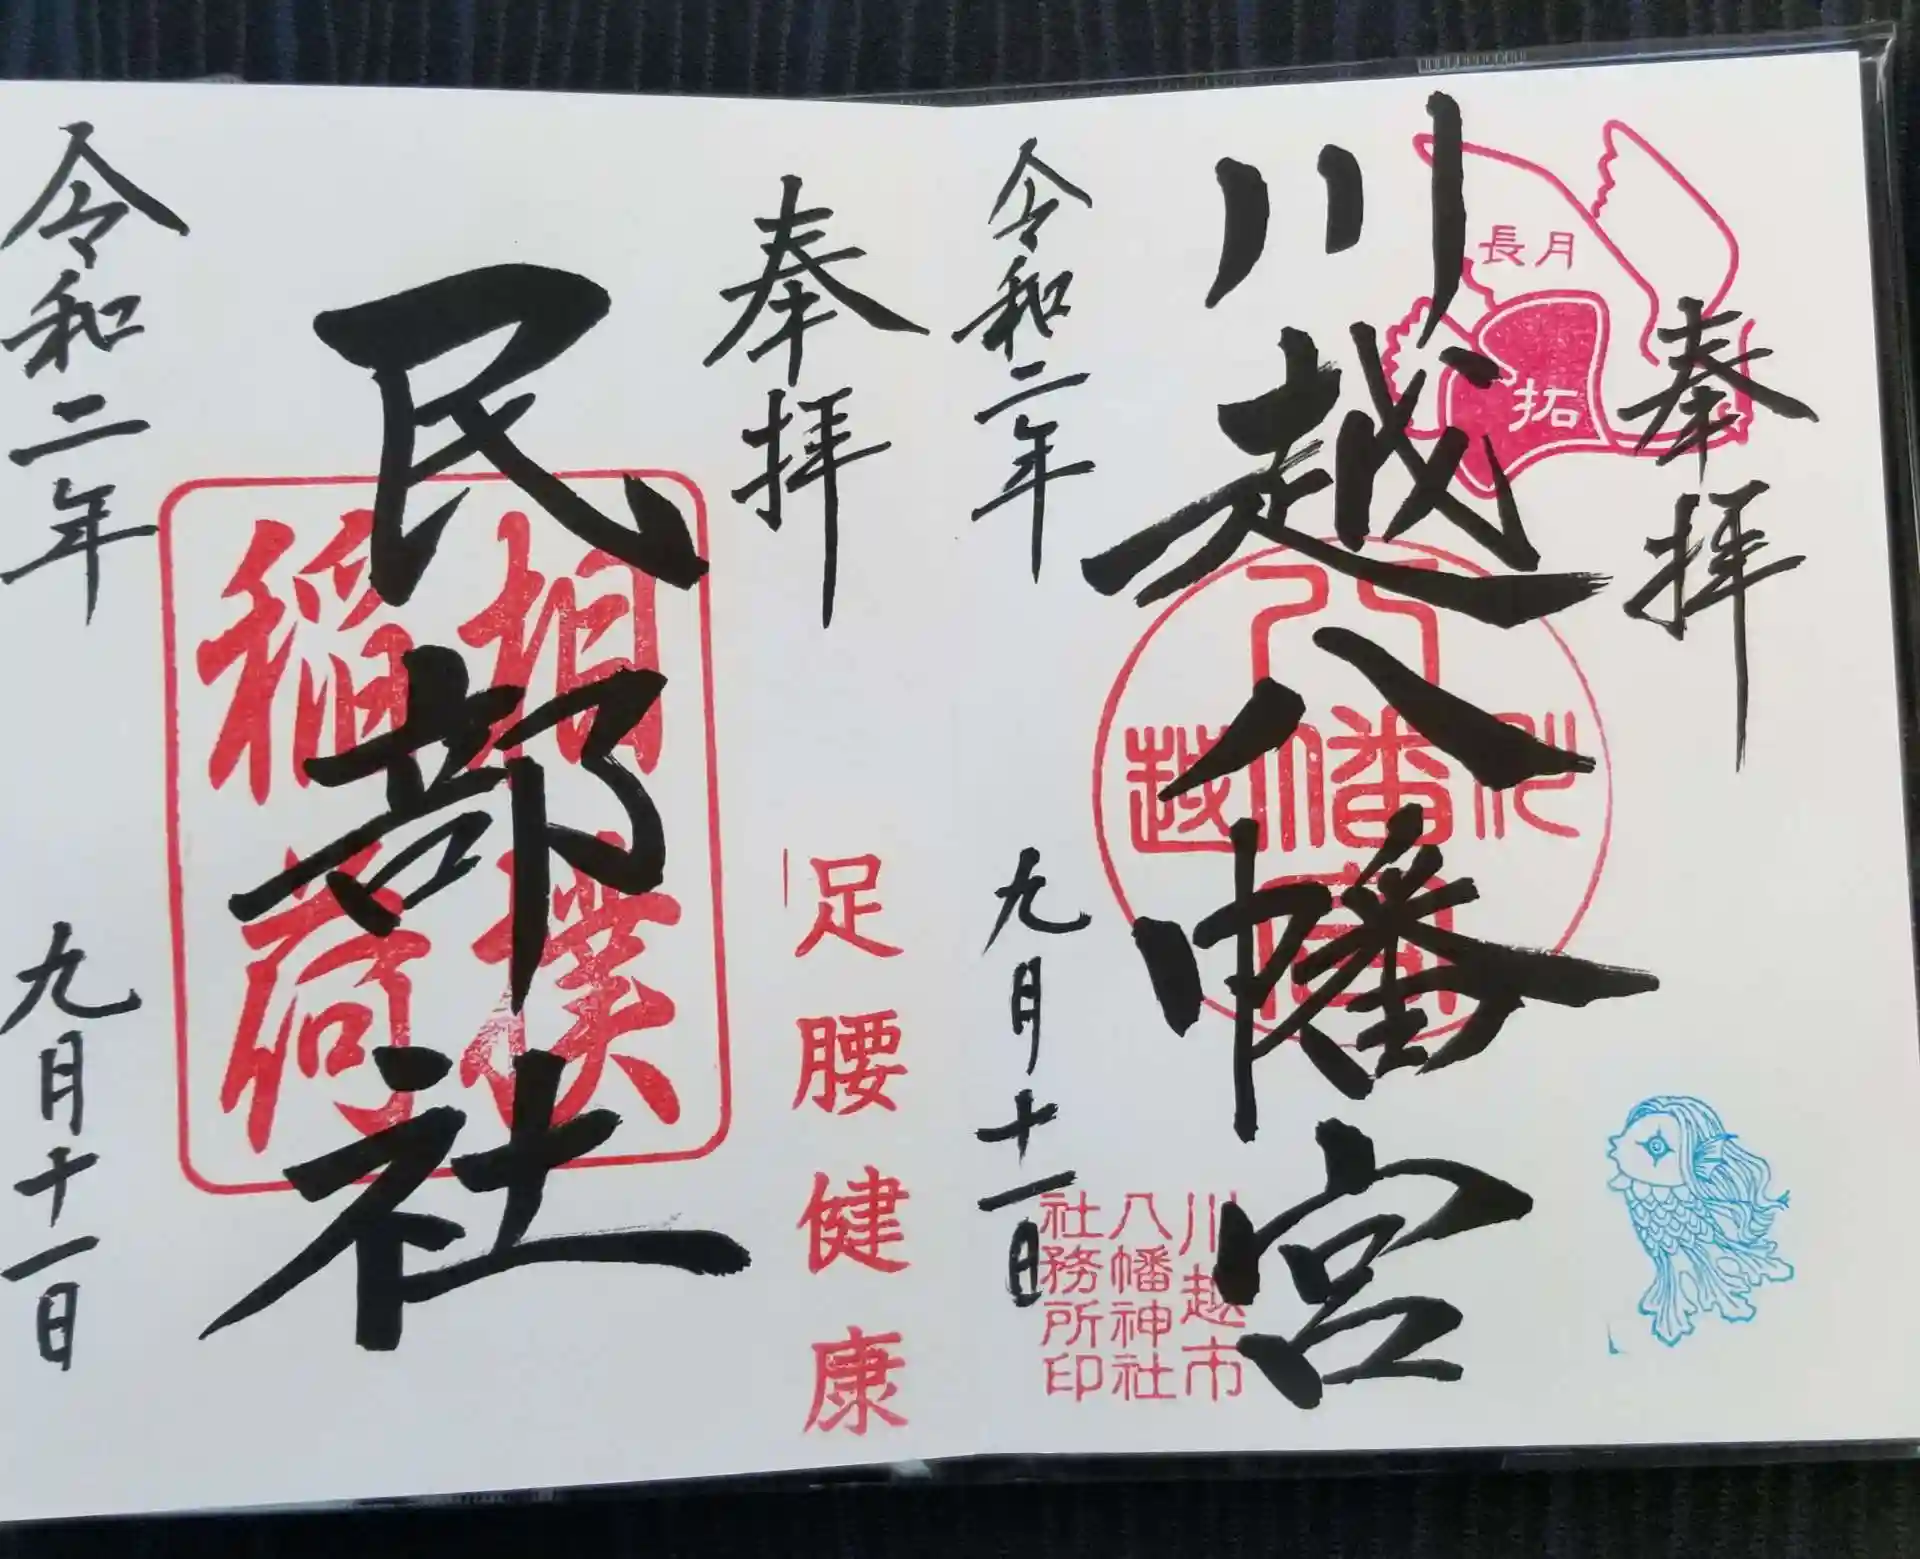 奉拝
長月
拓
川越八幡宮
八
川幡越
宮
川越市
八幡神社
社務所印
令和二年 九月十一日
奉拝
足腰健康
民部社
相撲
稲荷
令和二年 九月十一日